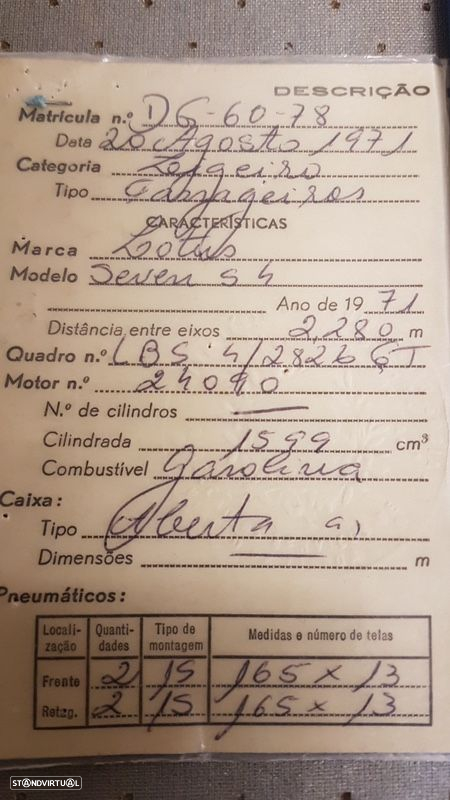 DESCRIÇÃO
Matrícula n.º DG-60-78
Data 20 Agosto 1971
Categoria Ligeiro
Tipo Passageiros
CARACTERÍSTICAS
Marca Lotus
Modelo Seven S 4
Ano de 19 71
Distância entre eixos 2,280 m
Quadro n.º LBS 4/2826 GT
Motor n.º 24090
N.º de cilindros —
Cilindrada 1599 cm³
Combustível Gasolina
Caixa:
Tipo Aberta a)
Dimensões — m
Pneumáticos:
Locali-zação Quanti-dades Tipo de montagem Medidas e número de telas
Frente 2 15 165 x 13
Retag. 2 15 165 x 13
STANDVIRTUAL